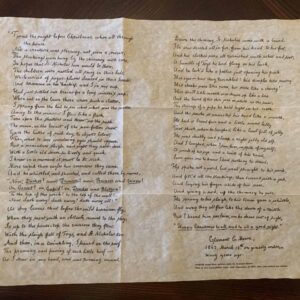 'Twas the night before Christmas, when all through
the house
Not a creature was stirring, not even a mouse;
The stockings were hung by the chimney with care,
In hopes that St Nicholas soon would be there;
The children were nestled all snug in their beds,
While visions of sugar-plums danced in their heads,
And Mama in her kerchief, and I in my cap,
Had just settled our brains for a long winter's nap,
When out on the lawn there arose such a clatter,
I sprang from the bed to see what was the matter.
Away to the window I flew like a flash,
Tore open the shutters and threw up the sash.
The moon, on the breast of the new-fallen snow,
Gave the lustre of mid-day to objects below,
When, what to my wondering eyes should appear,
But a miniature sleigh, and eight tiny rein-deer,
With a little old driver, so lively and quick,
I knew in a moment it must be St. Nick.
More rapid than eagles his coursers they came,
And he whistled, and shouted, and called them by name;
"Now, Dasher! now, Dancer! now, Prancer and Vixen!
On, Comet! on, Cupid! on, Donder and Blitzen!
To the top of the porch! to the top of the wall!
Now dash away! dash away! dash away all!"
As dry leaves that before the wild hurricane fly,
When they meet with an obstacle, mount to the sky;
So up to the house-top the coursers they flew,
With the sleigh full of Toys, and St. Nicholas too.
And then, in a twinkling, I heard on the roof
The prancing and pawing of each little hoof—
As I drew in my head, and was turning around,
Down the chimney St. Nicholas came with a bound.
He was dressed all in fur, from his head to his foot,
And his clothes were all tarnished with ashes and soot;
A bundle of Toys he had flung on his back,
And he look'd like a pedlar just opening his pack.
His eyes—how they twinkled! his dimples how merry!
His cheeks were like roses, his nose like a cherry!
His droll little mouth was drawn up like a bow,
And the beard of his chin was as white as the snow;
The stump of a pipe he held tight in his teeth,
And the smoke it encircled his head like a wreath;
He had a broad face and a little round belly,
That shook when he laughed, like a bowl full of jelly.
He was chubby and plump, a right jolly old elf,
And I laughed, when I saw him, in spite of myself;
A wink of his eye and a twist of his head,
Soon gave me to know I had nothing to dread;
He spoke not a word, but went straight to his work,
And fill'd all the stockings; then turned with a jerk,
And laying his finger aside of his nose,
And giving a nod, up the chimney he rose;
He sprang to his sleigh, to his team gave a whistle,
And away they all flew like the down of a thistle,
But I heard him exclaim, ere he drove out of sight,
"Happy Christmas to all, and to all a good night."
Clement C. Moore,
1862, March 13th
many years ago